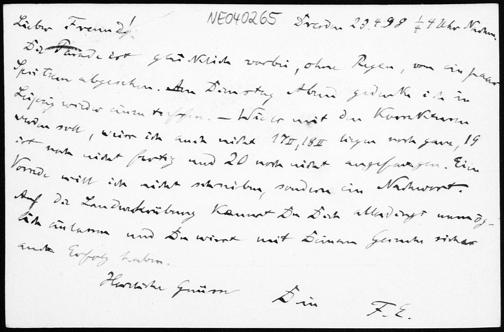 NE040265
Lieber Freund! Dresden 23.4.98 ¼4 Uhr Nachm.
Die Parade ist glücklich vorbei, ohne Regen, von ein paar
Spritzern abgesehen. Am Dienstag Abend gedenke ich in
Leipzig wieder einzutreffen. – Wie es mit den Korrekturen
werden soll, weiss ich auch nicht 17II, 18II liegen noch ganz, 19
ist noch nicht fertig und 20 noch nicht angefangen. Eine
Vorrede will ich nicht schreiben, sondern ein Nachwort.
Auf die Landwehrübung kannst Du Dich allerdings unmög-
lich einlassen und Du wirst mit Deinem Gesuche sicher
auch Erfolg haben.
Herzliche Grüsse Dein F. E.